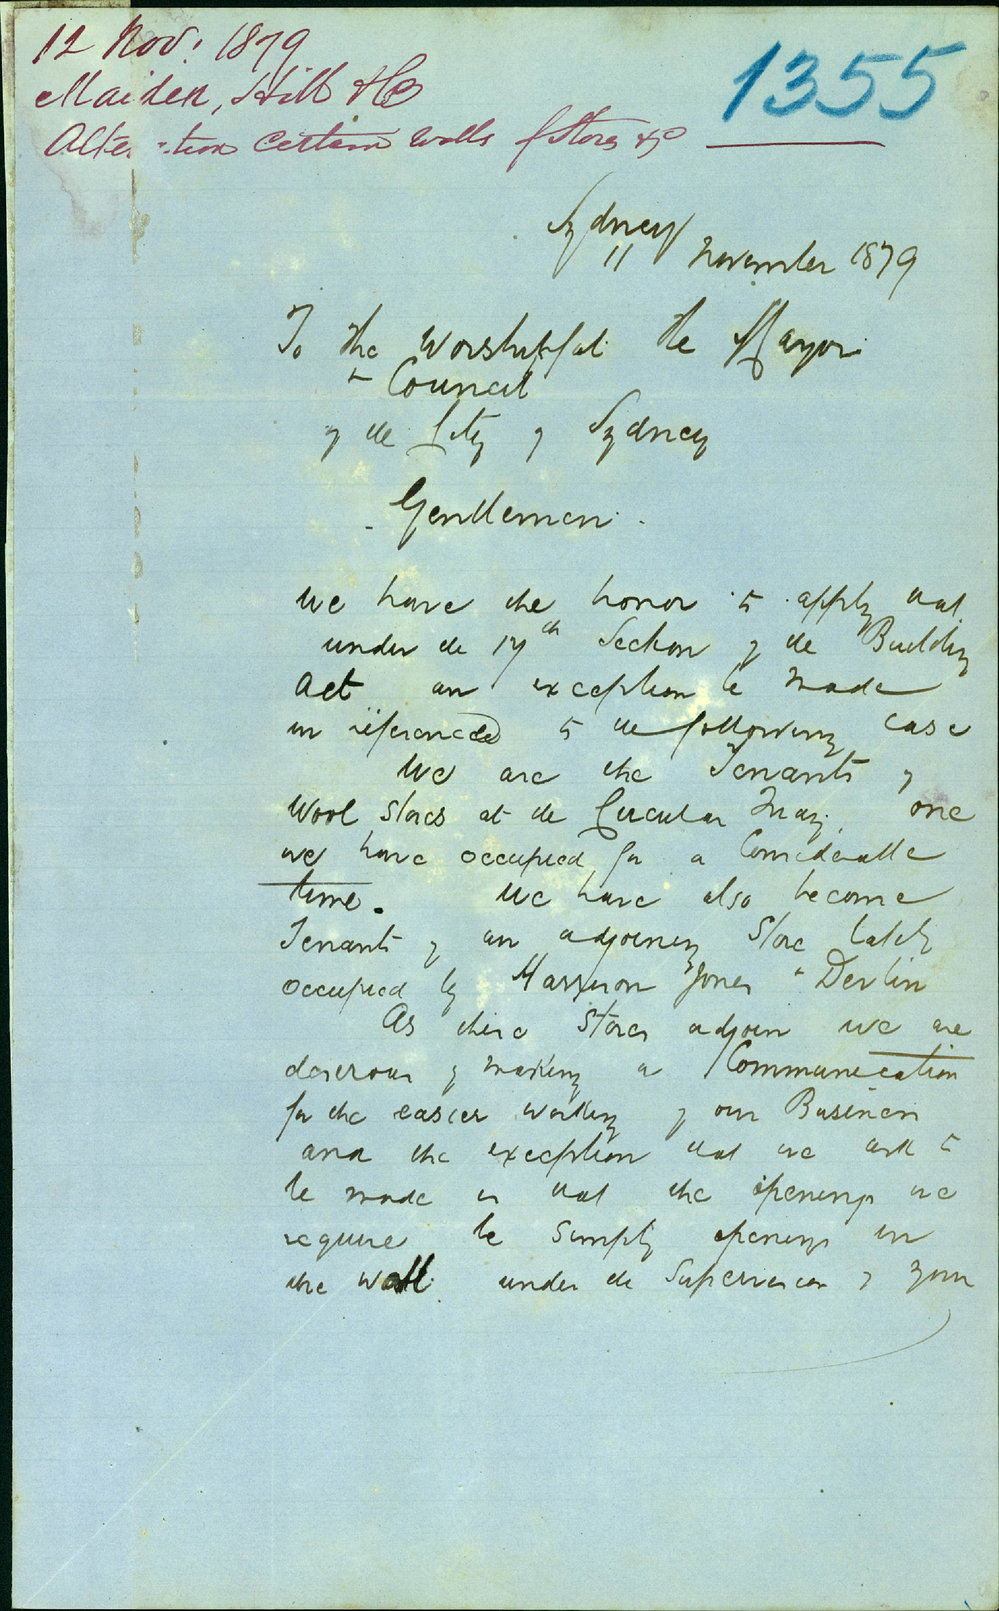 12 Nov: 1879
Maiden, Hill & Co
Alte ation Certain Walls of Stores &c
1355
Sydney
11 November 1879
To the Worshipful the Mayor
& Council
of the City of Sydney
Gentlemen
We have the honor to apply that
under the 17th Section of the Building
Act an exception be made
in reference to the following case
We are the Tenants of
Wool Stores at the Circular Quay. one
we have occupied for a Considerable
time. We have also become
Tenants of an adjoining Store lately
occupied by Harrison Jones & Devlin
As these Stores adjoin we are
desirous of making a Communication
for the easier working of our Business
and the exception that we ask to
be made is that the openings we
require be simply openings in
the wall under the Supervision of your